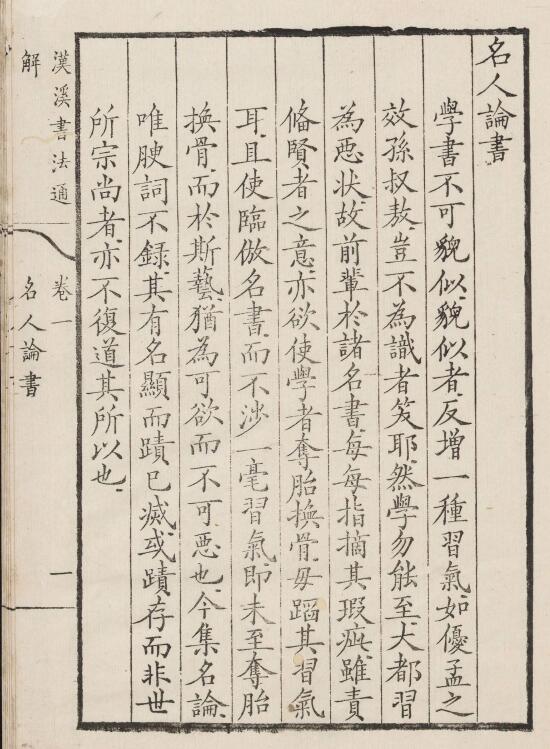 名人論書
學書不可貌似貌似者反增一種習氣如優孟之
效孫叔敖豈不為識者笑耶然學勿能至大都習
為惡狀故前輩於諸名書每每指摘其瑕疵雖責
備賢者之意亦欲使學者奪胎換骨毋蹈其習氣
耳且使臨倣名書而不涉一毫習氣即未至奪胎
換骨而於斯藝猶為可欲而不可惡也今集名論
唯腴詞不錄其有名顯而蹟已滅或蹟存而非世
所宗尚者亦不復道其所以也
漢溪書法通
解
卷一
名人論書
一